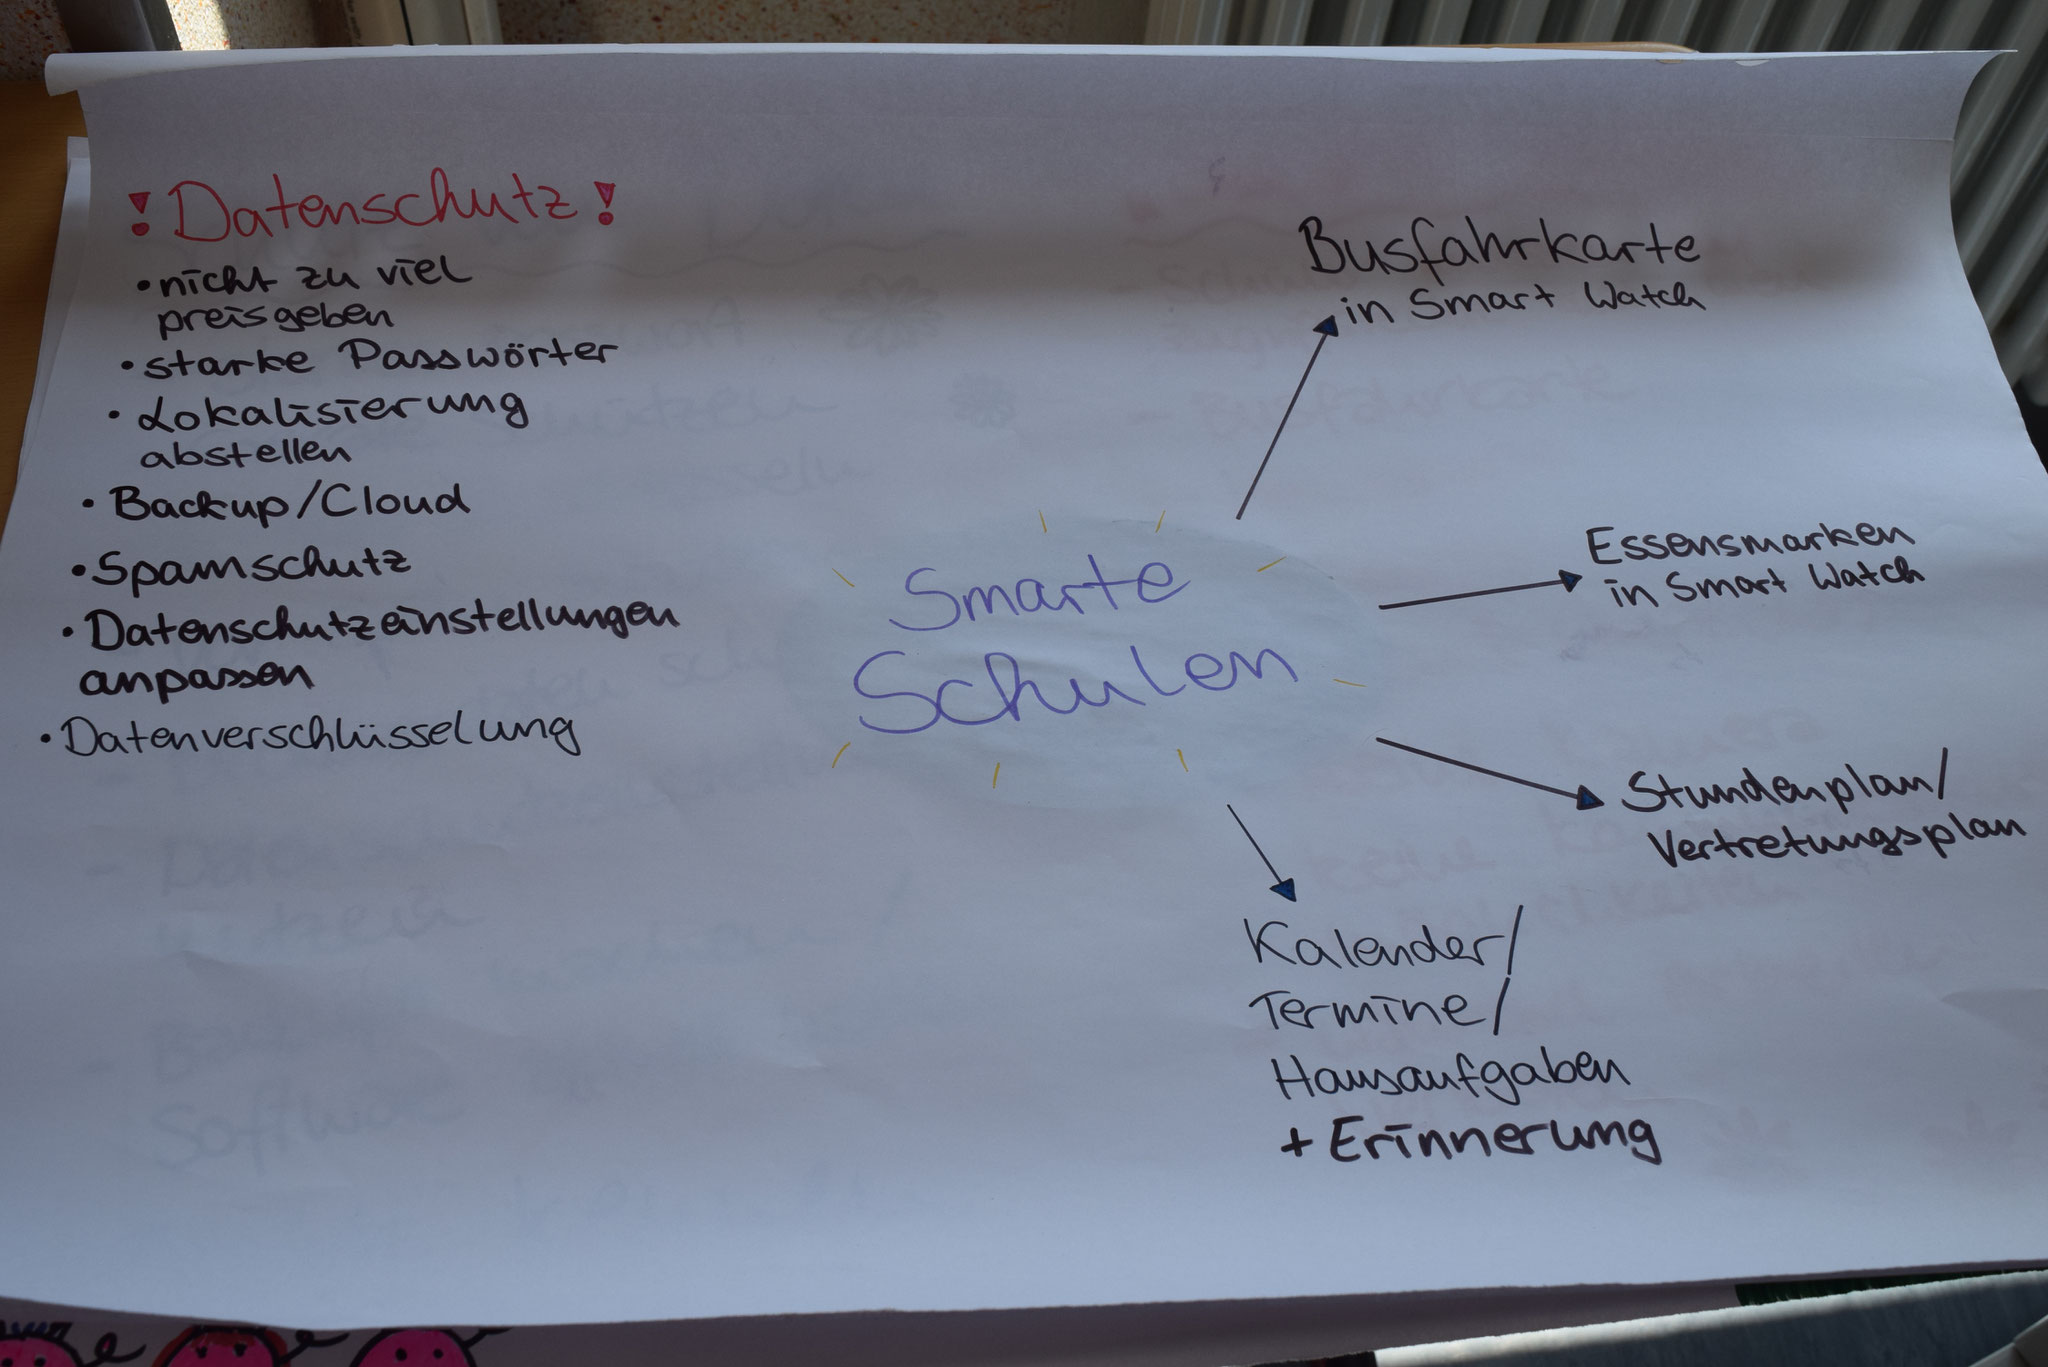 ! Datenschutz !
• nicht zu viel
preisgeben
• starke Passwörter
• Lokalisierung
abstellen
• Backup/Cloud
• Spamschutz
• Datenschutzeinstellungen
anpassen
• Datenverschlüsselung
Smarte
Schulen
Busfahrkarte
in Smart Watch
Essensmarken
in Smart Watch
Stundenplan/
Vertretungsplan
Kalender/
Termine/
Hausaufgaben
+ Erinnerung